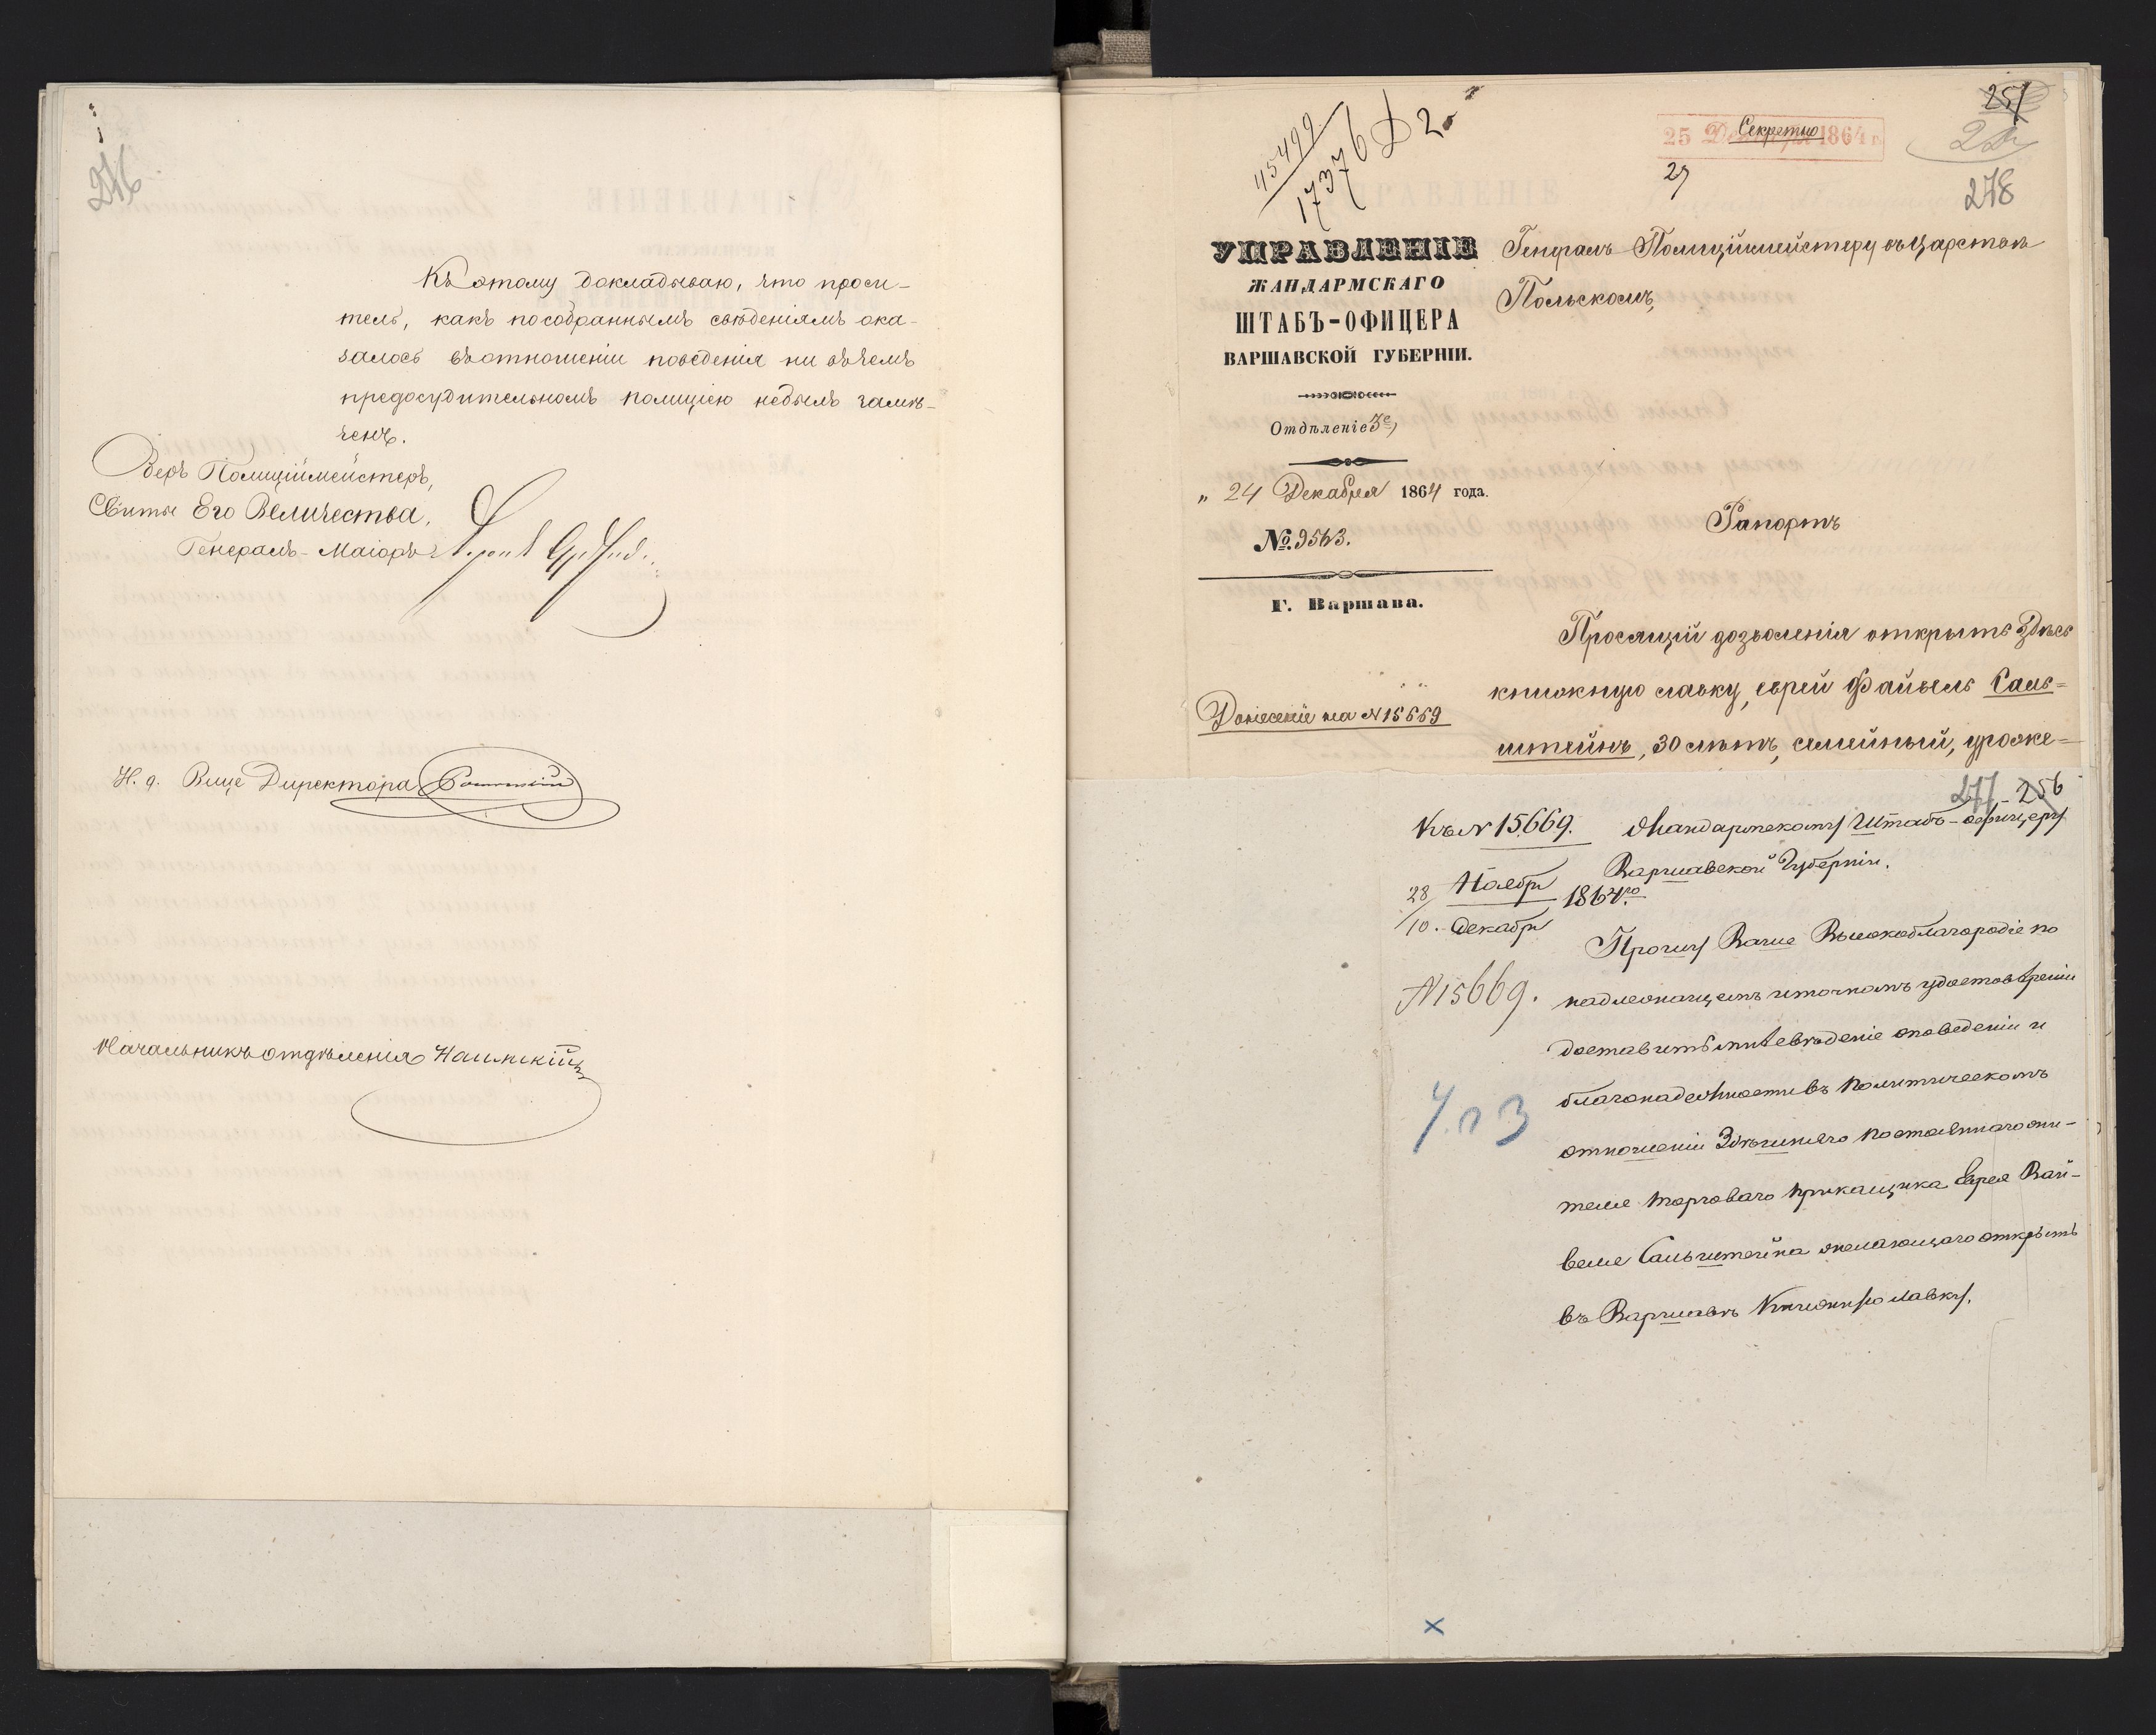 246
Къ этому докладываю, что проси-
тель, какъ по собраннымъ свѣдѣніямъ ока-
залось въ отношеніи поведенія ни въ чемъ
предосудительномъ полиціею небылъ замѣ-
ченъ.
Оберъ Полиціймейстеръ,
Свиты Его Величества,
Генералъ-Маіоръ
И. д. Вице Директора
Начальникъ отдѣленія
15499
17376
251
25 Декабря 1864 г.
Секретно
27
278
УПРАВЛЕНІЕ
ЖАНДАРМСКАГО
ШТАБЪ-ОФИЦЕРА
ВАРШАВСКОЙ ГУБЕРНІИ.
Отдѣленіе 3е,
„ 24 Декабря 1864 года.
№ 9563.
Г. Варшава.
Генералъ-Полиціймейстеру въ Царствѣ
Польскомъ,
Рапортъ
Донесеніе на № 15669
Просящій дозволенія открыть здѣсь
книжную лавку, еврей Файвель Саль=
штейнъ, 30 лѣтъ, семейный, уроже=
277 256
Къ № 15669. Жандармскому Штабъ-офицеру
Варшавской Губерніи.
28 Ноябр
/10. Декабр 1864 го.
№ 15669.
Прошу Ваше Высокоблагородіе по
надлежащемъ и точномъ удостовѣреніи
доставить мнѣ свѣдѣніе о поведеніи и
благонадежности въ политическомъ
отношеніи Здѣшняго постояннаго жи-
теля торговаго прикащика Еврея Фай-
веля Сальштейна желающаго открыть
въ Варшавѣ Книжную лавку.